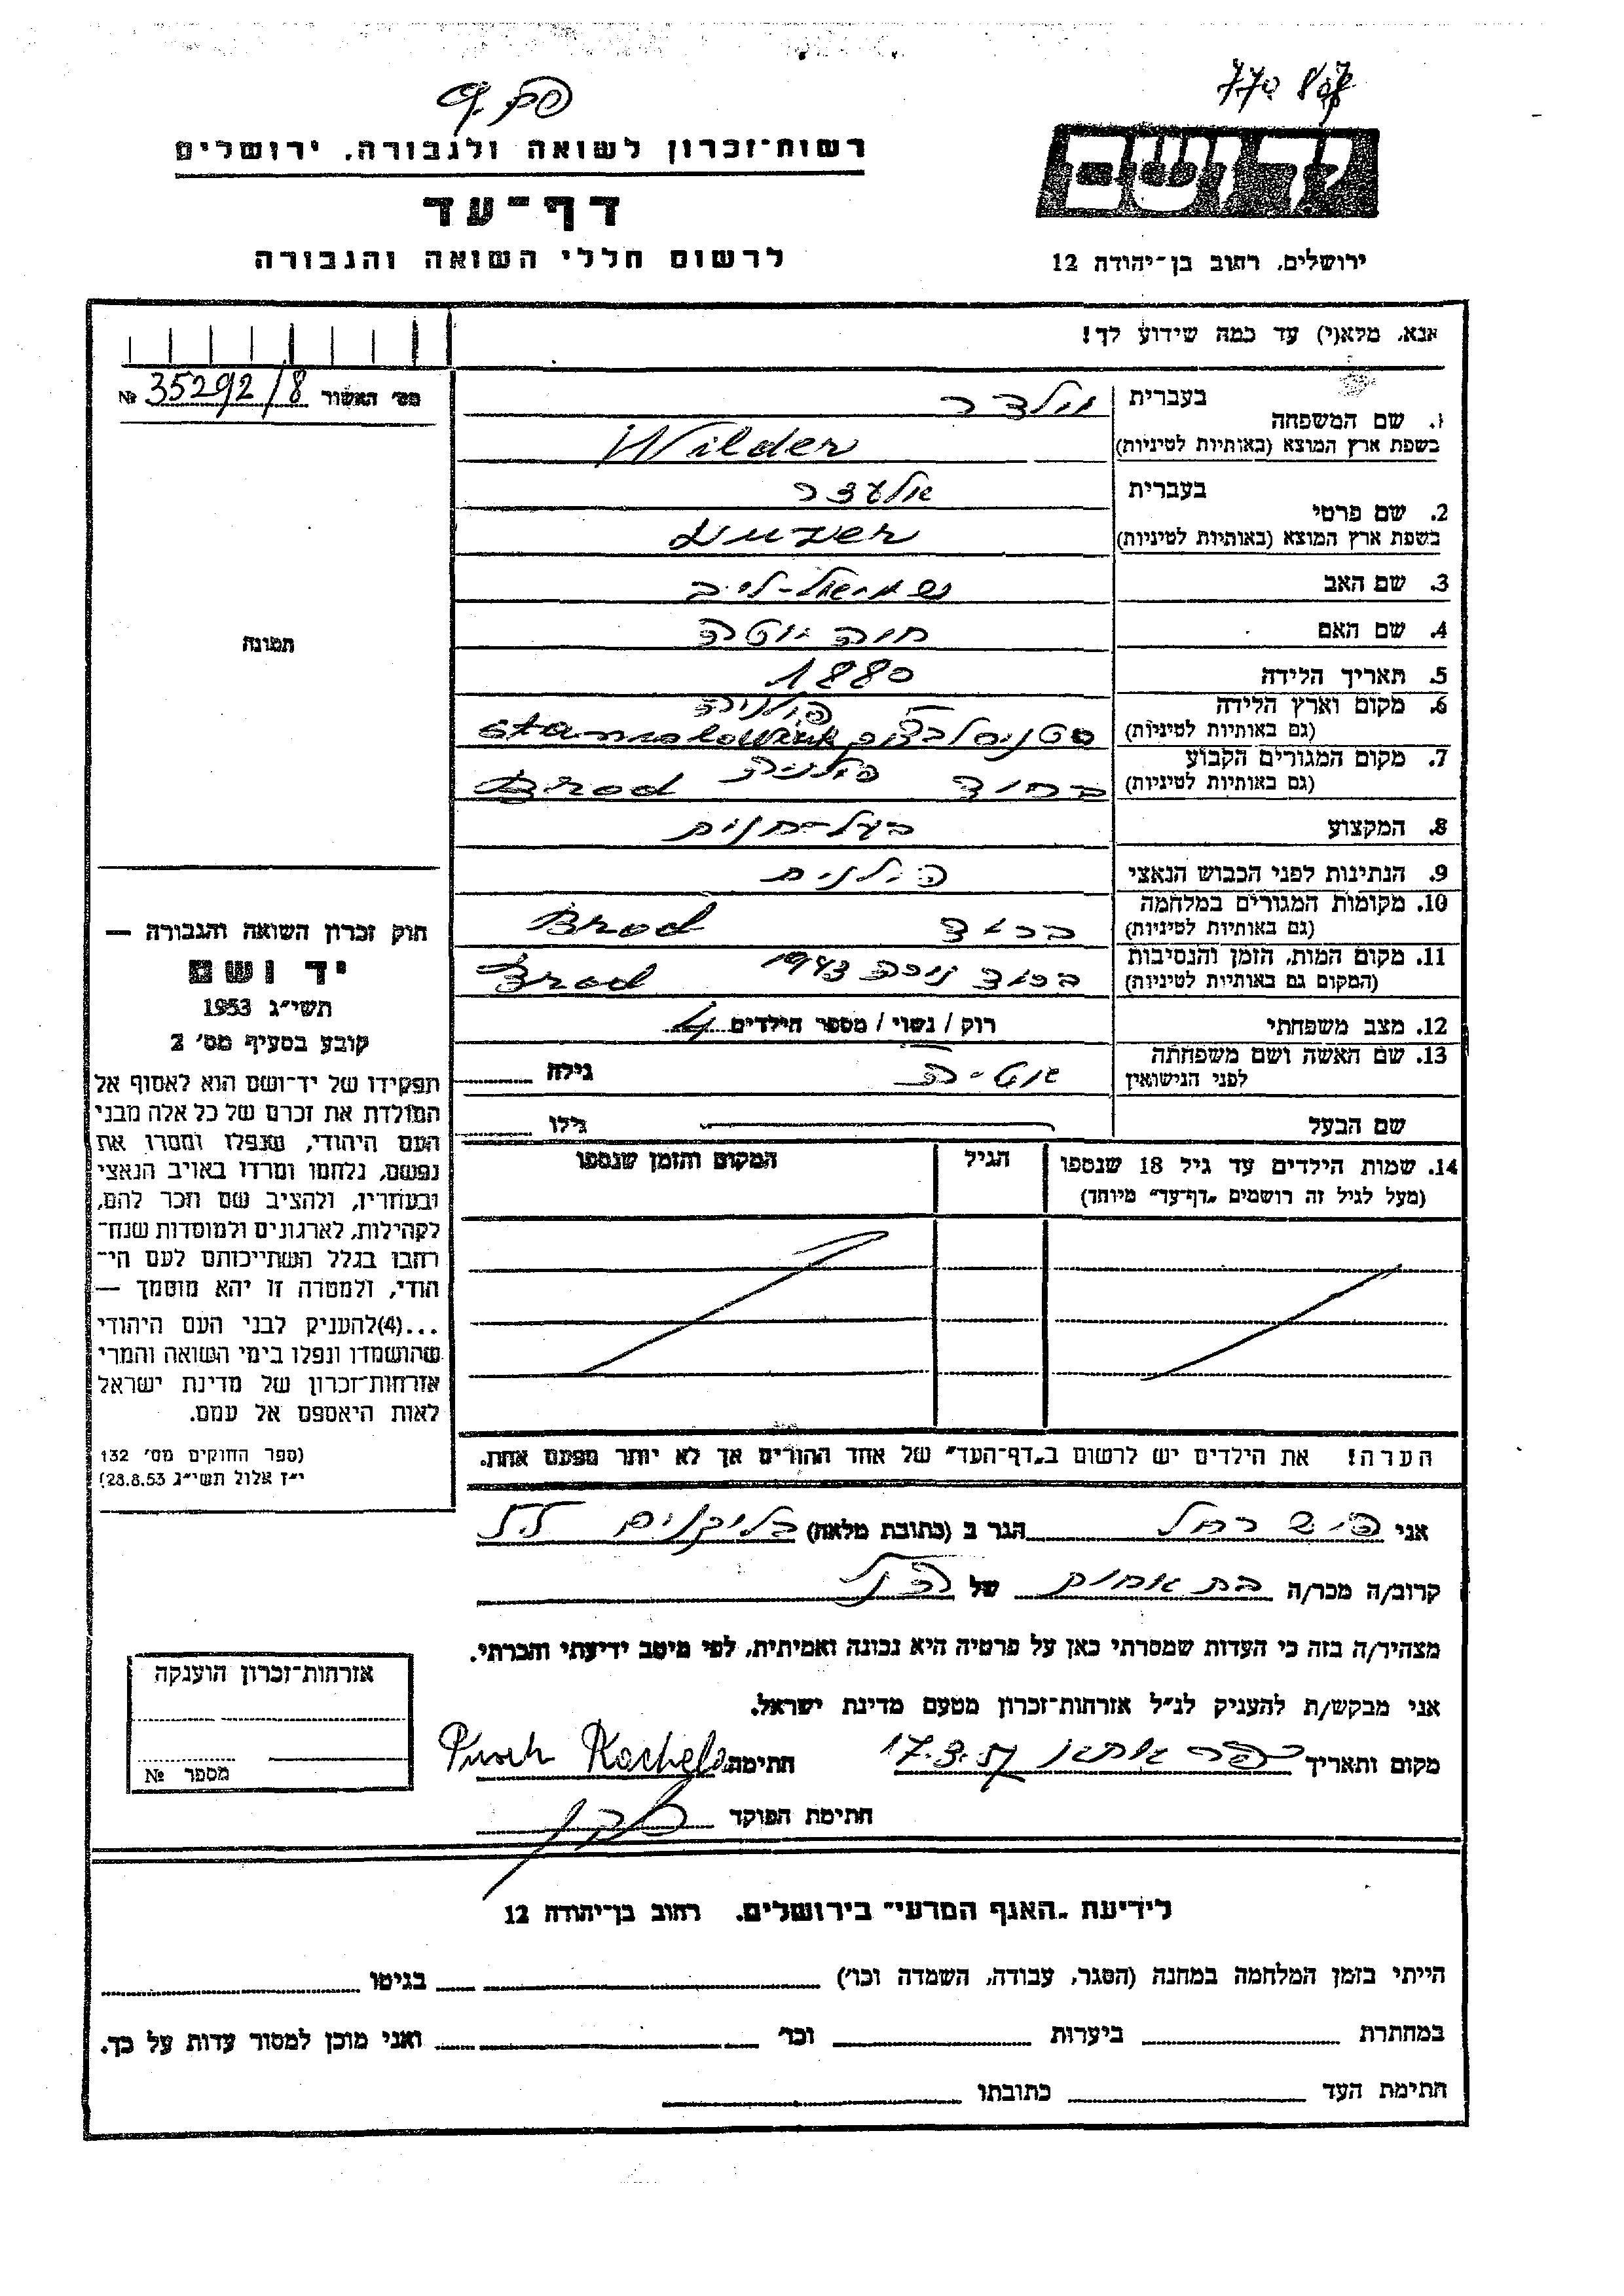 770 808
רשות־זכרון לשואה ולגבורה, ירושלים
דף־עד
לרשום חללי השואה והגבורה
יד ושם
ירושלים, רחוב בן־יהודה 12
אנא, מלא(י) עד כמה שידוע לך!
מס׳ האשור № 35292/8
תמונה
1. שם המשפחה בעברית וילדר
בשפת ארץ המוצא (באותיות לטיניות) Wilder
2. שם פרטי בעברית אלעזר
בשפת ארץ המוצא (באותיות לטיניות) Luzer
3. שם האב שמואל-לייב
4. שם האם חיה יוטה
5. תאריך הלידה 1880
6. מקום וארץ הלידה פולניה
(גם באותיות לטיניות)
7. מקום המגורים הקבוע פולניה
(גם באותיות לטיניות) ברוד Brod
8. המקצוע בעל-חנות
9. הנתינות לפני הכבוש הנאצי פולנית
10. מקומות המגורים במלחמה
(גם באותיות לטיניות) ברוד Brod
11. מקום המות, הזמן והנסיבות
(המקום גם באותיות לטיניות) ברוד נורה 1943 Brod
12. מצב משפחתי רוק / נשוי / מספר הילדים 4
13. שם האשה ושם משפחתה
לפני הנישואין גילה
שם הבעל גילו
14. שמות הילדים עד גיל 18 שנספו הגיל המקום והזמן שנספו
(מעל לגיל זה רושמים „דף־עד״ מיוחד)
הערה! את הילדים יש לרשום ב„דף־העד״ של אחד ההורים אך לא יותר מפעם אחת.
חוק זכרון השואה והגבורה —
יד ושם
תשי״ג 1953
קובע בסעיף מס׳ 2
תפקידו של יד־ושם הוא לאסוף אל
המולדת את זכרם של כל אלה מבני
העם היהודי, שנפלו ומסרו את
נפשם, נלחמו ומרדו באויב הנאצי
ובעוזריו, ולהציב שם וזכר להם,
לקהילות, לארגונים ולמוסדות שנח־
רבו בגלל השתייכותם לעם הי־
הודי, ולמטרה זו יהא מוסמך —
...(4)להעניק לבני העם היהודי
שהושמדו ונפלו בימי השואה והמרי
אזרחות־זכרון של מדינת ישראל
לאות היאספם אל עמם.
(ספר החוקים מס׳ 132
י״ז אלול תשי״ג 28.8.53)
אני פיש רחל הגר ב (כתובת מלאה)
קרוב/ה מכר/ה בת אחות של הנ״ל
מצהיר/ה בזה כי העדות שמסרתי כאן על פרטיה היא נכונה ואמיתית, לפי מיטב ידיעתי והכרתי.
אני מבקש/ת להעניק לנ״ל אזרחות־זכרון מטעם מדינת ישראל.
מקום ותאריך כפר אתא 17.3.57 חתימה Rachela
חתימת הפוקד
אזרחות־זכרון הוענקה
מספר №
לידיעת „האגף המדעי״ בירושלים, רחוב בן־יהודה 12
הייתי בזמן המלחמה במחנה (הסגר, עבודה, השמדה וכו׳) בגיטו
במחתרת ביערות וכו׳ ואני מוכן למסור עדות על כך.
חתימת העד כתובתו